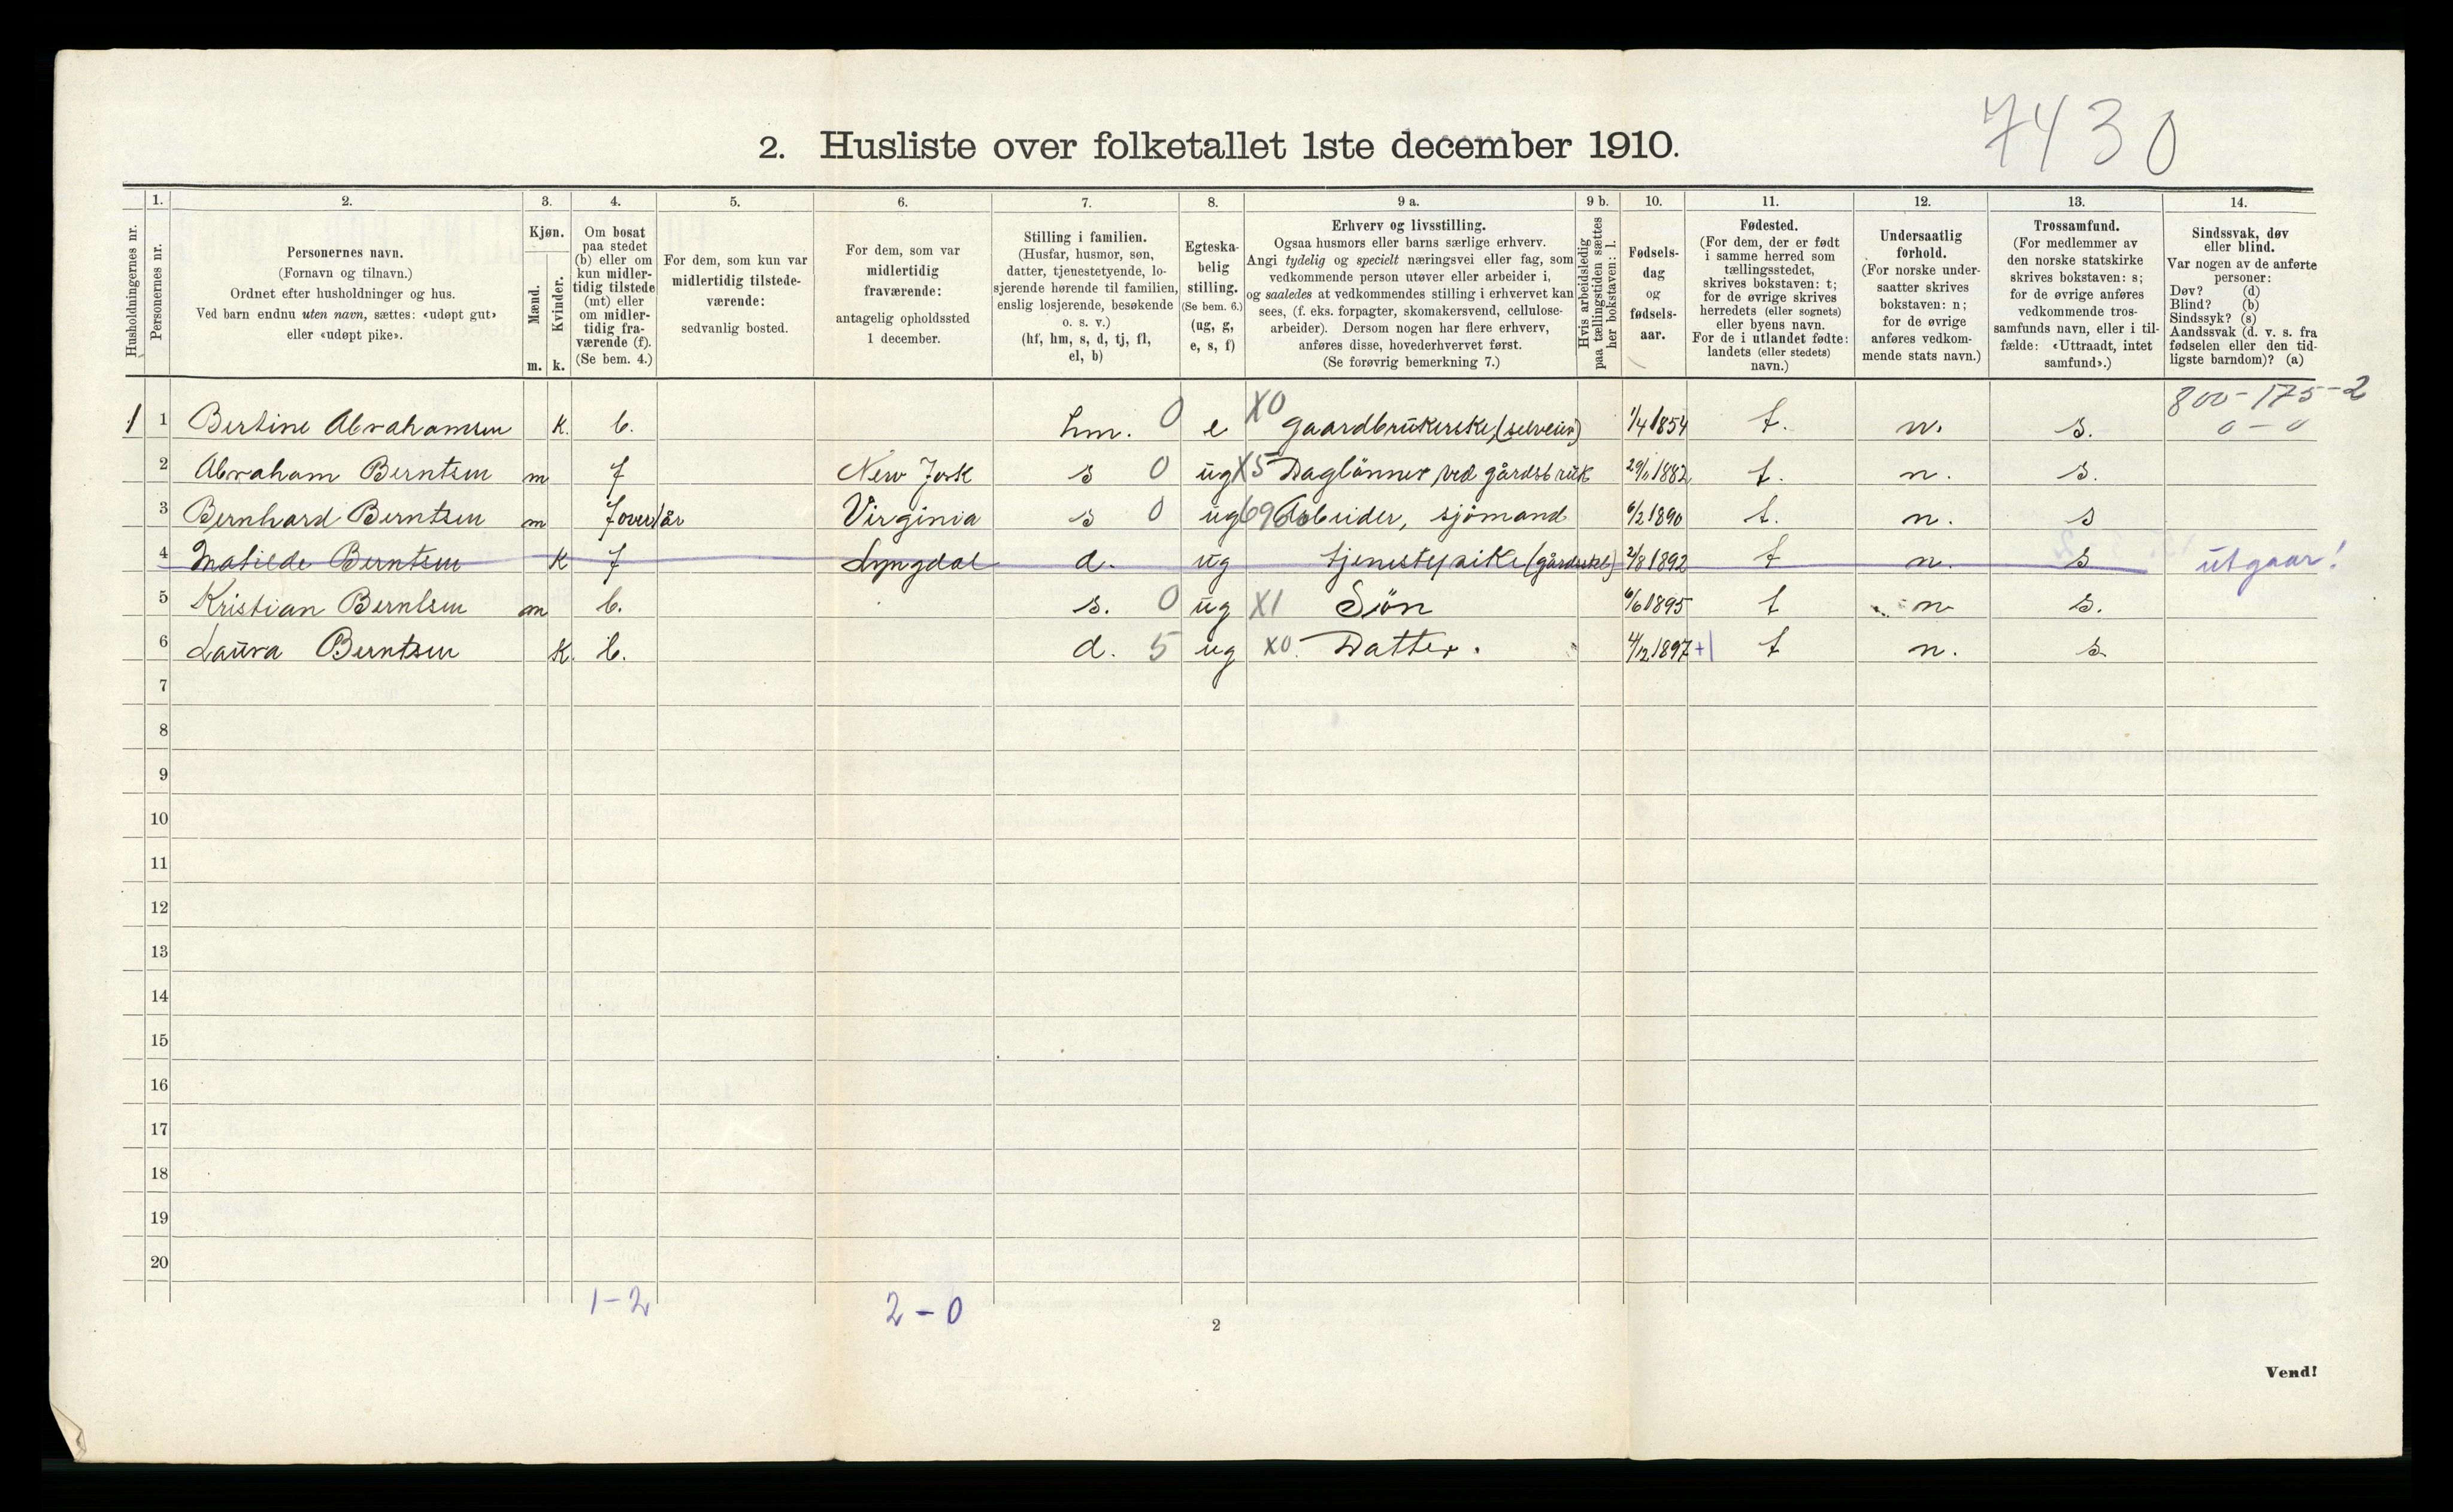 7430
2. Husliste over folketallet 1ste december 1910.
Husholdningernes nr.
1.
Personernes nr.
2.
Personernes navn.
(Fornavn og tilnavn.)
Ordnet efter husholdninger og hus.
Ved barn endnu uten navn, sættes: «udøpt gut»
eller «udøpt pike».
3.
Kjøn.
Mænd.
Kvinder.
m. k.
4.
Om bosat
paa stedet
(b) eller om
kun midler-
tidig tilstede
(mt) eller
om midler-
tidig fra-
værende (f).
(Se bem. 4.)
5.
For dem, som kun var
midlertidig tilstede-
værende:
sedvanlig bosted.
6.
For dem, som var
midlertidig
fraværende:
antagelig opholdssted
1 december.
7.
Stilling i familien.
(Husfar, husmor, søn,
datter, tjenestetyende, lo-
sjerende hørende til familien,
enslig losjerende, besøkende
o. s. v.)
(hf, hm, s, d, tj, fl,
el, b)
8.
Egteska-
belig
stilling.
(Se bem. 6.)
(ug, g,
e, s, f)
9 a.
Erhverv og livsstilling.
Ogsaa husmors eller barns særlige erhverv.
Angi tydelig og specielt næringsvei eller fag, som
vedkommende person utøver eller arbeider i,
og saaledes at vedkommendes stilling i erhvervet kan
sees, (f. eks. forpagter, skomakersvend, cellulose-
arbeider). Dersom nogen har flere erhverv,
anføres disse, hovederhvervet først.
(Se forøvrig bemerkning 7.)
9 b.
Hvis arbeidsledig
paa tællingstiden sættes
her bokstaven: l.
10.
Fødsels-
dag
og
fødsels-
aar.
11.
Fødested.
(For dem, der er født
i samme herred som
tællingsstedet,
skrives bokstaven: t;
for de øvrige skrives
herredets (eller sognets)
eller byens navn.
For de i utlandet fødte:
landets (eller stedets)
navn.)
12.
Undersaatlig
forhold.
(For norske under-
saatter skrives
bokstaven: n;
for de øvrige
anføres vedkom-
mende stats navn.)
13.
Trossamfund.
(For medlemmer av
den norske statskirke
skrives bokstaven: s;
for de øvrige anføres
vedkommende tros-
samfunds navn, eller i til-
fælde: «Uttraadt, intet
samfund».)
14.
Sindssvak, døv
eller blind.
Var nogen av de anførte
personer:
Døv? (d)
Blind? (b)
Sindssyk? (s)
Aandssvak (d. v. s. fra
fødselen eller den tid-
ligste barndom)? (a)
800-175-2
1 1 Bertine Abrahamsen K. b. hm. 0 e X0 gaardbrukerske, (selveier) 1/4 1854 t. n. s. 0-0
2 Abraham Berntsen m f New York s 0 ug X5 Daglønner ved gårdsbruk 29/11 1882 t. n. s.
3 Bernhard Berntsen m f over 1 år Virginia s 0 ug 696 Arbeider, sjømand 6/2 1890 t. n. s
4 Matilde Berntsen K f Lyngdal d. ug tjenestepike (gårdsstel) 2/8 1892 t n. s utgaar!
5 Kristian Berntsen m b. s. 0 ug X1 Søn 6/6 1895 t n s.
6 Laura Berntsen K. b. d. 5 ug X0 Datter. 4/12 1897 +1 t n. s.
7
8
9
10
11
12
13
14
15
16
17
18
19
20
1-2 2-0
2
Vend!